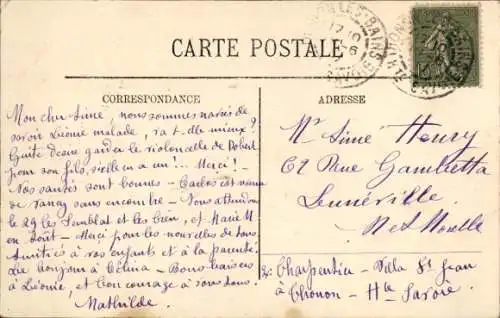 THONON-LES-BAINS
CARTE POSTALE
CORRESPONDANCE
ADRESSE
Mon cher Aimé, nous sommes navrés de
savoir Léonie malade, va t-elle mieux ?
Guite désire garder le violoncelle de Robert
pour son fils, s'elle en a un !... Merci !-
Nos santés sont bonnes - Carlos est venu
de sans encombre - Nous attendons
le 29 les et les et Marie M
en Août - Merci pour les nouvelles de tous.
Amitiés à vos enfants et à la parenté
Un bonjour à Célina - Bons baisers
à Léonie, et bon courage à vous tous.
Mathilde.
Mr Aimé Henry
62 Rue Gambetta
Lunéville
Mthe Moselle
Charpentier - Villa St Jean
à Thonon - Hte Savoie.